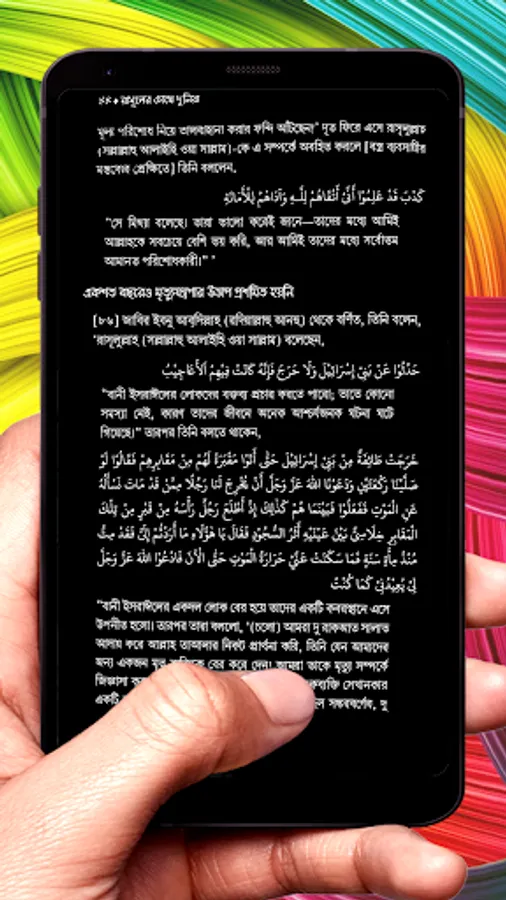 ৪৪ • রাসূলের চোখে দুনিয়া
মূল্য পরিশোধ নিয়ে তালবাহানা করার ফন্দি আঁটছেন!" দূত ফিরে এসে রাসূলুল্লাহ
(সল্লাল্লাহু আলাইহি ওয়া সাল্লাম)-কে এ সম্পর্কে অবহিত করলে [বস্ত্র ব্যবসায়ীর
মন্তব্যের প্রেক্ষিতে] তিনি বললেন,
كَذَبَ قَدْ عَلِمُوْا أَنِّيْ أَتْقَاهُمْ لِلّٰهِ وَآدَاهُمْ لِلْأَمَانَةِ
"সে মিথ্যা বলেছে। তারা ভালো করেই জানে—তাদের মধ্যে আমিই
আল্লাহকে সবচেয়ে বেশি ভয় করি, আর আমিই তাদের মধ্যে সর্বোত্তম
আমানত পরিশোধকারী।" '
একশত বছরেও মৃত্যুযন্ত্রণার উত্তাপ প্রশমিত হয়নি
[৮৬] জাবির ইবনু আবদিল্লাহ (রদিয়াল্লাহু আনহু) থেকে বর্ণিত, তিনি বলেন,
'রাসূলুল্লাহ (সল্লাল্লাহু আলাইহি ওয়া সাল্লাম) বলেছেন,
حَدِّثُوْا عَنْ بَنِيْ إِسْرَائِيْلَ وَلَا حَرَجَ فَإِنَّهُ كَانَتْ فِيْهِمُ الْأَعَاجِيْبُ
"বানী ইসরাঈলের লোকদের বক্তব্য প্রচার করতে পারো; তাতে কোনো
সমস্যা নেই, কারণ তাদের জীবনে অনেক আশ্চর্যজনক ঘটনা ঘটে
গিয়েছে।" তারপর তিনি বলতে থাকেন,
خَرَجَتْ طَائِفَةٌ مِنْ بَنِيْ إِسْرَائِيْلَ حَتّٰى أَتَوْا مَقْبَرَةً لَهُمْ مِنْ مَقَابِرِهِمْ فَقَالُوْا لَوْ
صَلَّيْنَا رَكْعَتَيْنِ وَدَعَوْنَا اللهَ عَزَّ وَجَلَّ أَنْ يُخْرِجَ لَنَا رَجُلًا مِمَّنْ قَدْ مَاتَ نَسْأَلُهُ
عَنِ الْمَوْتِ فَفَعَلُوْا فَبَيْنَمَا هُمْ كَذٰلِكَ إِذْ أَطْلَعَ رَجُلٌ رَأْسَهُ مِنْ قَبْرٍ مِنْ تِلْكَ
الْمَقَابِرِ خِلَاسِيٌّ بَيْنَ عَيْنَيْهِ أَثَرُ السُّجُوْدِ فَقَالَ يَا هٰؤُلَاءِ مَا أَرَدْتُمْ إِلَيَّ فَقَدْ مِتُّ
مُنْذُ مِائَةِ سَنَةٍ فَمَا سَكَنَتْ عَنِّيْ حَرَارَةُ الْمَوْتِ حَتّٰى الْآنَ فَادْعُوا اللهَ عَزَّ وَجَلَّ
لِيْ يُعِيْدُنِيْ كَمَا كُنْتُ
"বানী ইসরাঈলের একদল লোক বের হয়ে তাদের একটি কবরস্থানে এসে
উপনীত হলো। তারপর তারা বললো, '(চলো) আমরা দু রাকআত সালাত
আদায় করে আল্লাহ তাআলার নিকট প্রার্থনা করি, তিনি যেন আমাদের
জন্য একজন মৃত বের করে দেন। আমরা তাকে মৃত্যু সম্পর্কে
জিজ্ঞাসা সেখানকার
একটি সঙ্করবর্ণের, দু